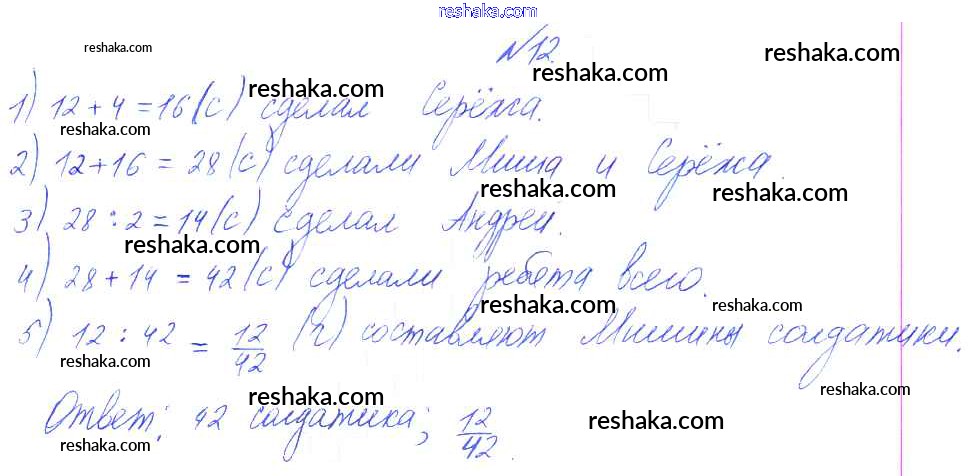 reshaka.com
№12.
reshaka.com reshaka.com
reshaka.com reshaka.com
1) 12 + 4 = 16 (с) сделал Серёжа.
reshaka.com reshaka.com
2) 12 + 16 = 28 (с) сделали Миша и Серёжа.
reshaka.com reshaka.com
3) 28 : 2 = 14 (с) сделал Андрей.
reshaka.com
4) 28 + 14 = 42 (с) сделали ребята всего.
reshaka.com reshaka.com
5) 12 : 42 = 12/42 (ч) составляют Мишины солдатики.
reshaka.com reshaka.com reshaka.com
Ответ: 42 солдатика; 12/42.
reshaka.com reshaka.com
reshaka.com